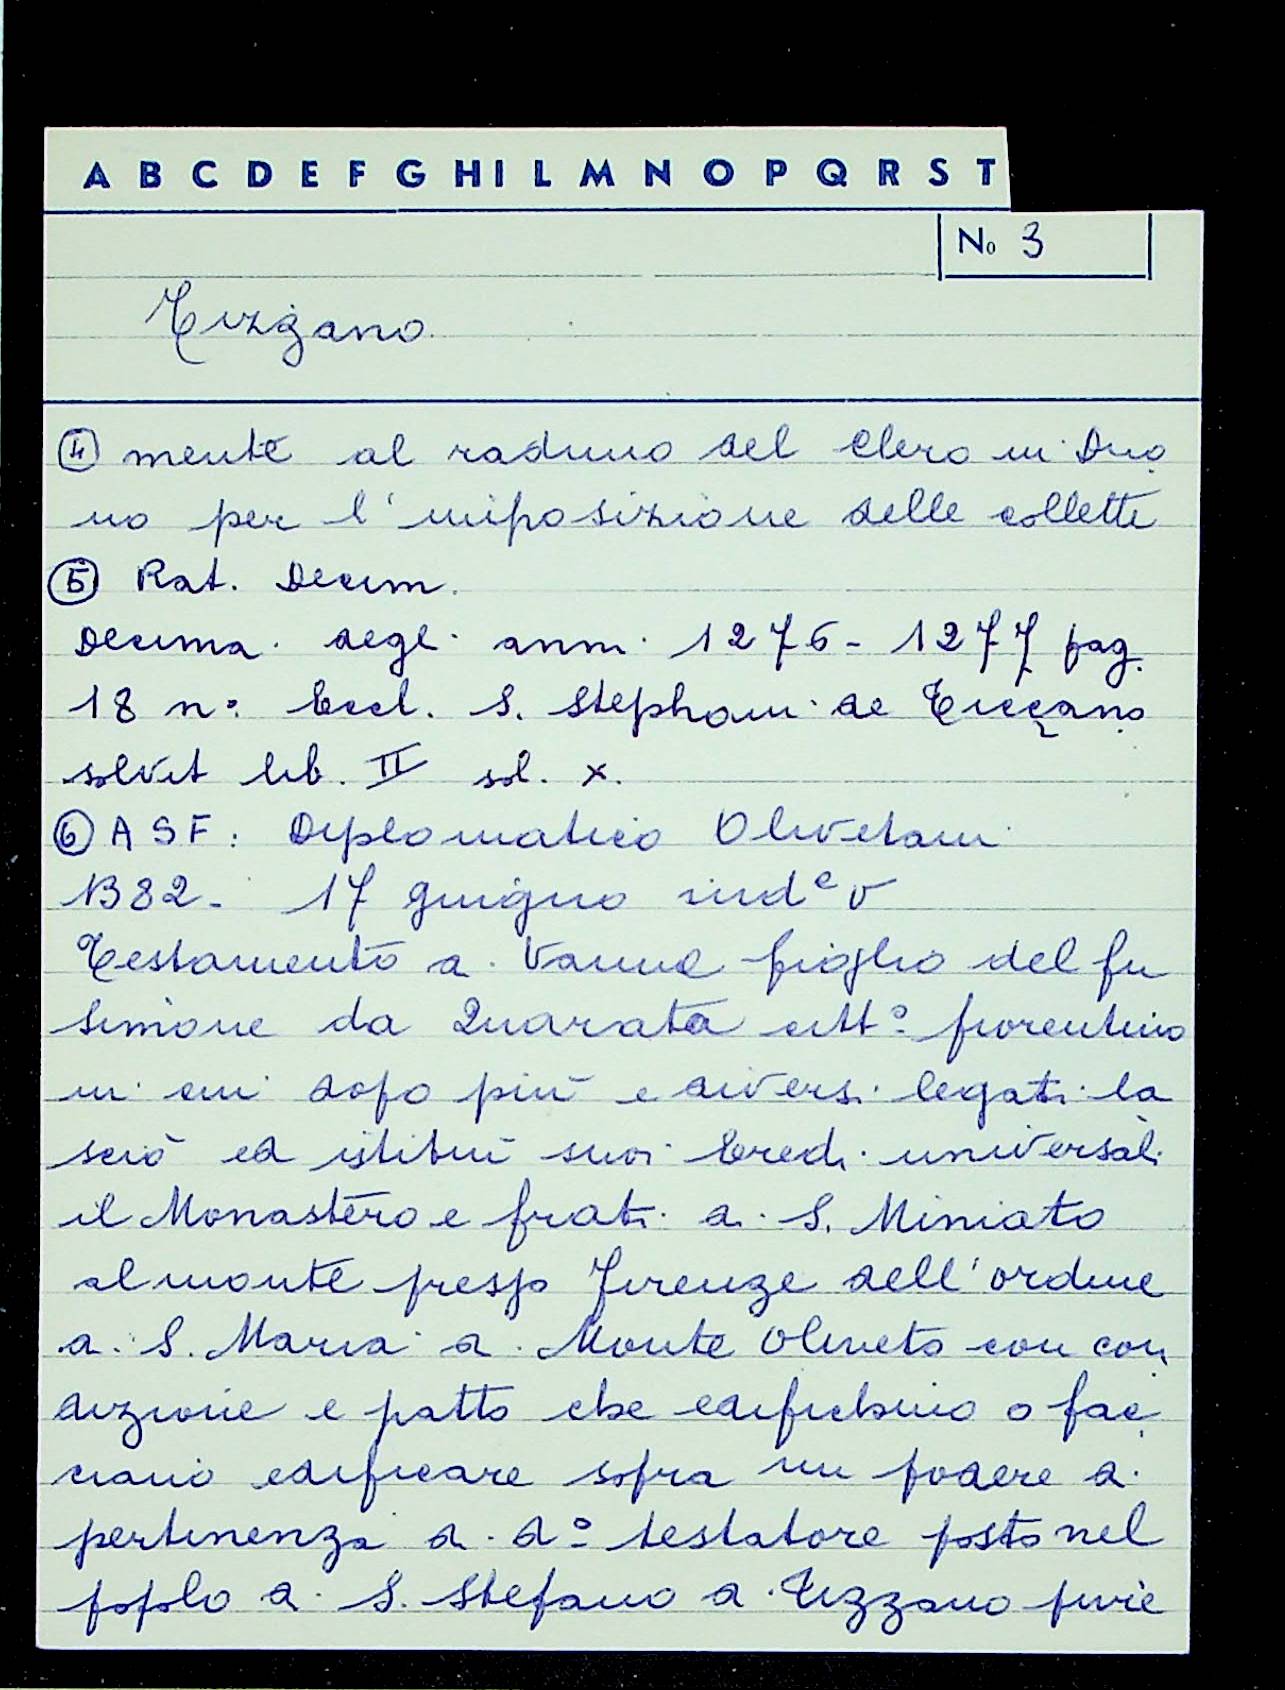 A B C D E F G H I L M N O P Q R S T
No 3
Tizzano
④ mente al raduno del clero in Duo
mo per l'imposizione delle collette
⑤ Rat. Decim.
Decima degli anni 1276-1277 pag.
18 n° Eccl. S. Stephani de Ticçano
solvit lib. II sol. x.
⑥ ASF: Diplomatico Olivetani
1382 - 17 giugno indᵉ V
Testamento di Vanne figlio del fu
Simone da Quarata citt° fiorentino
in cui dopo più e diversi legati la
sciò ed istituì suoi Eredi universali
il Monastero e frati di S. Miniato
al monte presso Firenze dell'ordine
di S. Maria di Monte Oliveto con con
dizione e patto che edifichino o fac
ciano edificare sopra un podere di
pertinenza di d° testatore posto nel
popolo di S. Stefano a Tizzano pivie